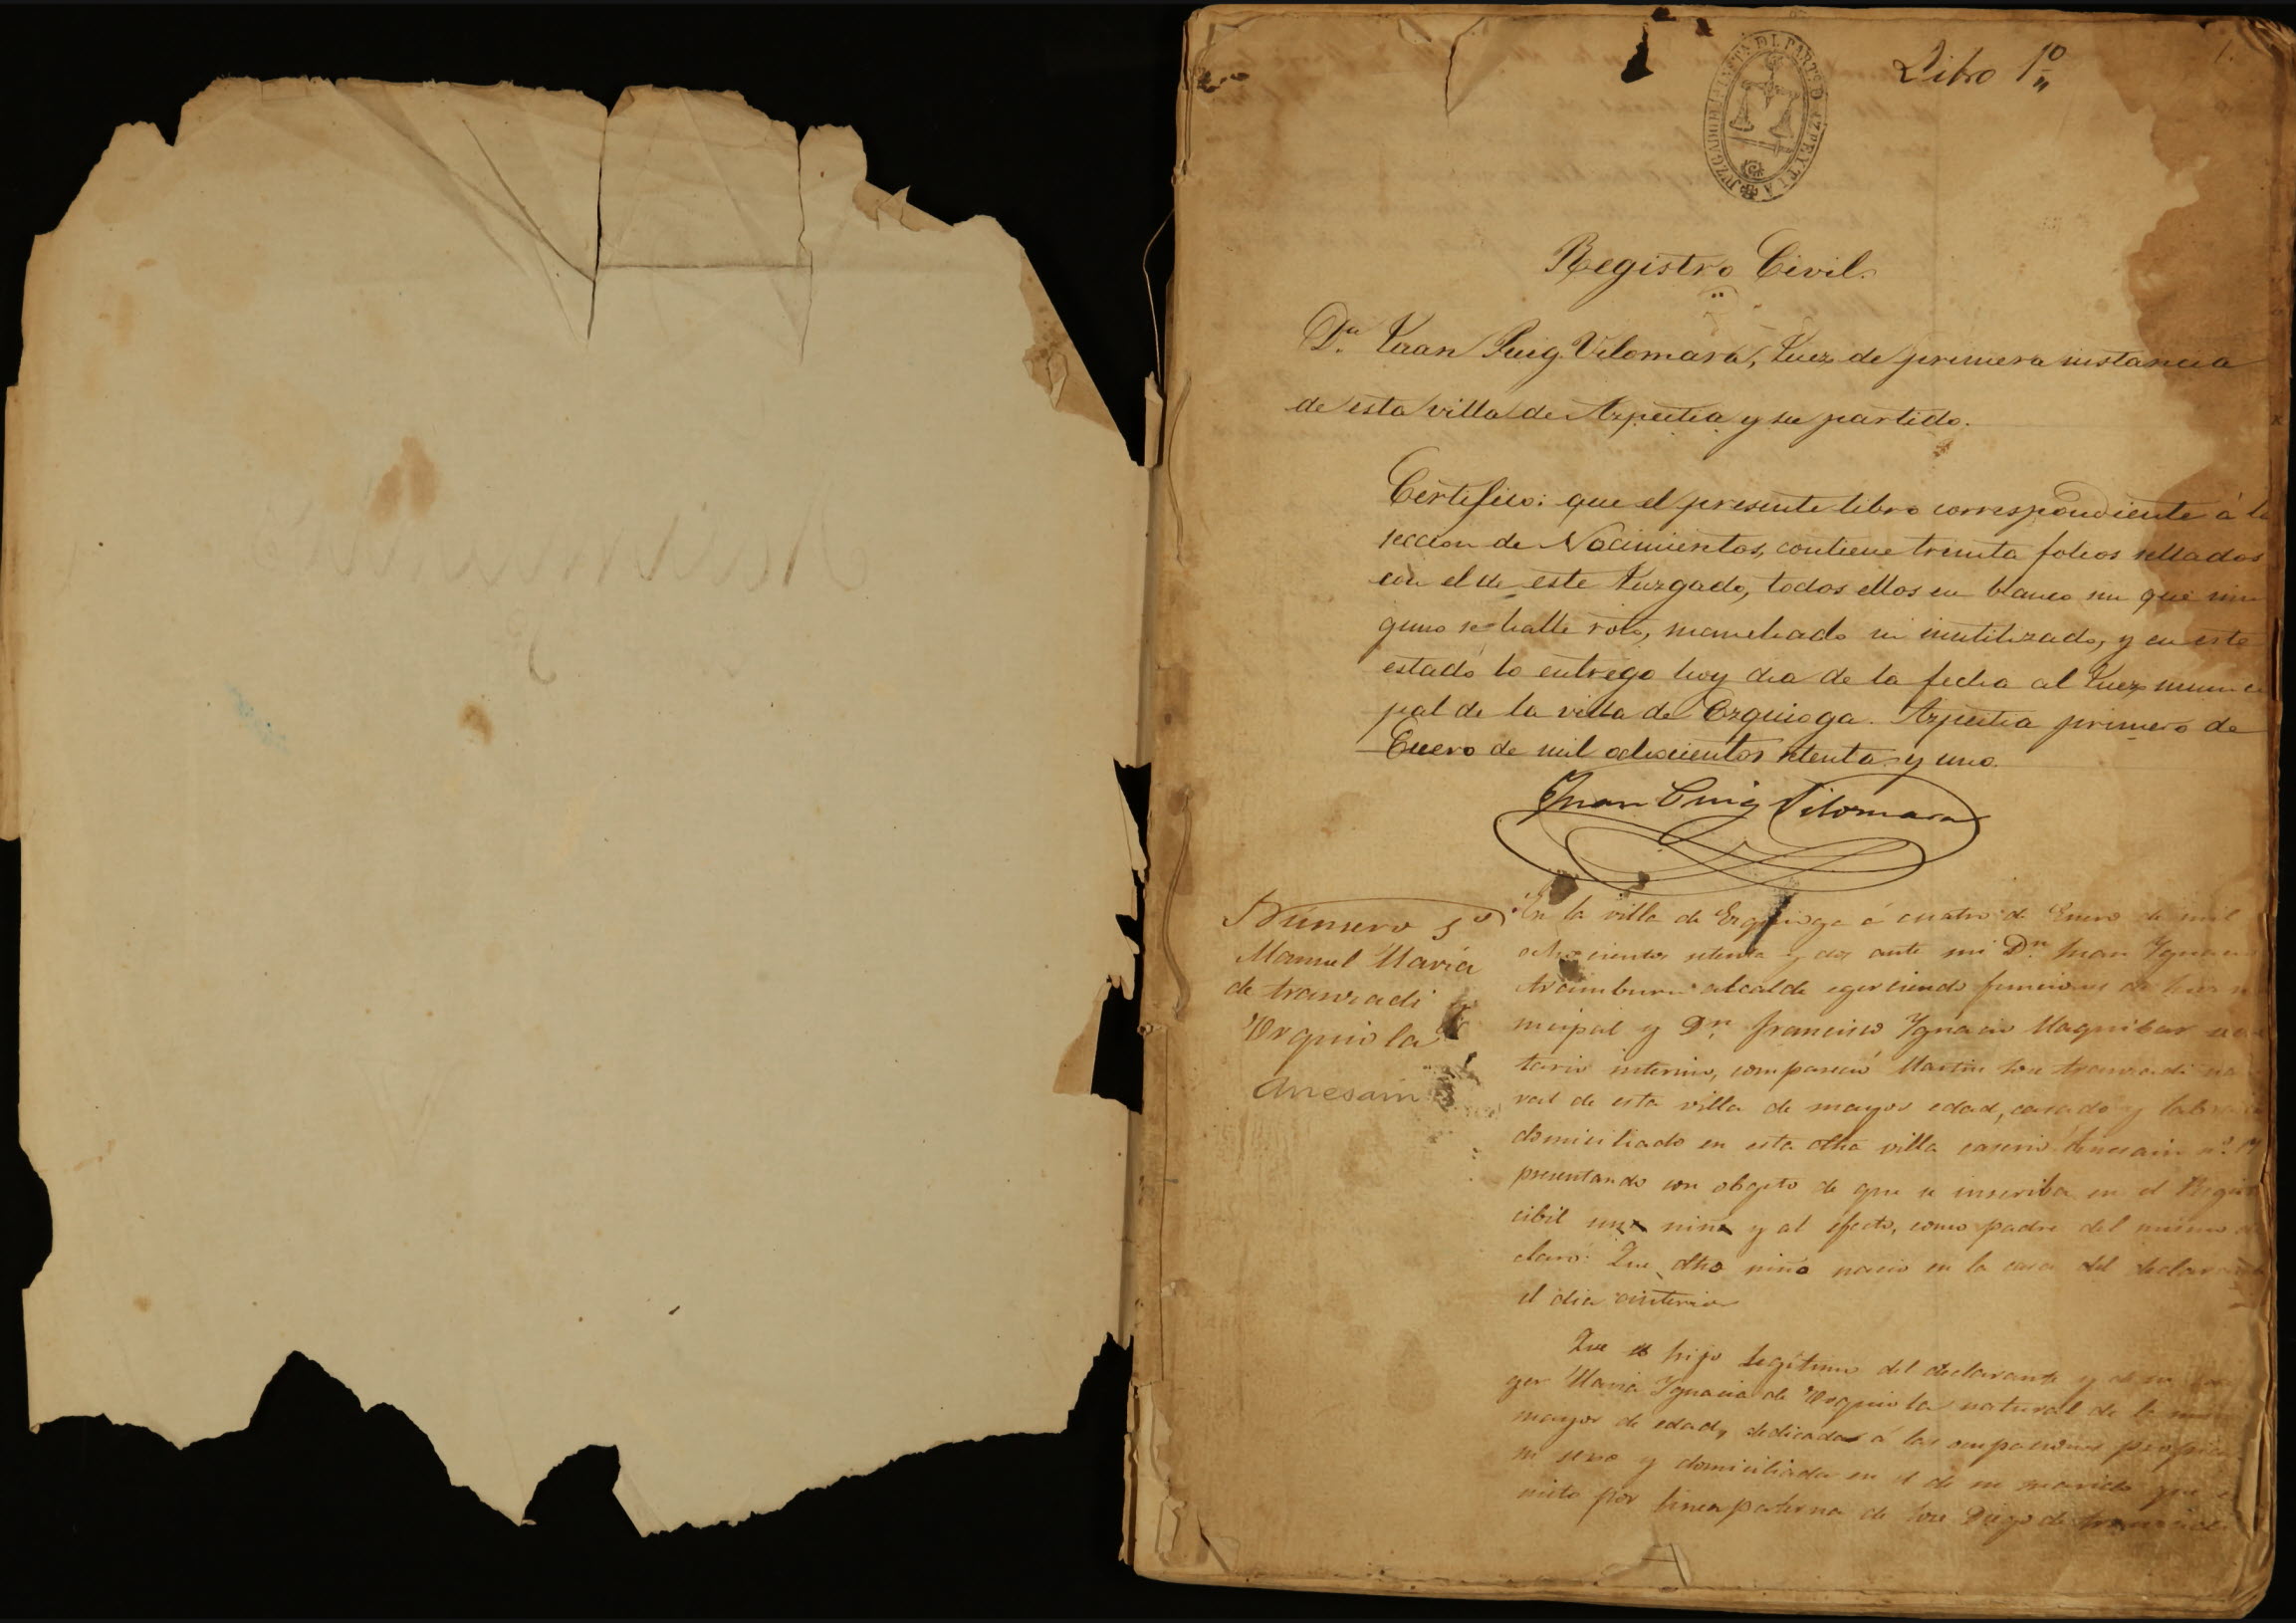 Libro 1º
JUZGADO DE 1ª INSTA. DEL PARTº DE AZPEYTIA
Registro Civil.
Dn. Juan Puig Vilomara, Juez de primera instancia
de esta villa de Azpeitia y su partido.
Certifico: que el presente libro correspondiente á la
seccion de Nacimientos, contiene treinta folios sellados
con el de este Juzgado, todos ellos en blanco sin que nin
guno se halle roto, manchado ni inutilizado, y en este
estado lo entrego hoy dia de la fecha al Juez munici
pal de la villa de Ezquioga. Azpeitia primero de
Enero de mil ochocientos setenta y uno.
Juan Puig Vilomara
Número 1º
Manuel María
de
Urquiola
Anesain
En la villa de Ezquioga á cuatro de Enero de mil
ochocientos setenta y dos ante mi Dn. Juan Ygnacio
Aramburu alcalde egerciendo funciones de Juez mu
nicipal y Dn. Francisco Ygnacio Maquibar
tario interino, compareció Martin José
ral de esta villa de mayor edad, casado y labra
domiciliado en esta dha villa caserio Anesain nº
presentando con objeto de que se inscriba en el Regis
cibil un niño y al efecto, como padre del mismo de
claró: Que dho niño nació en la casa del declarante
el dia anterior
Que es hijo legitimo del declarante y de su
ger Maria Ygnacia de Urquiola natural de la
mayor de edad, dedicada á las ocupaciones propias
su sexo y domiciliada en el de su marido que es
nieto por linea paterna de José Diego de